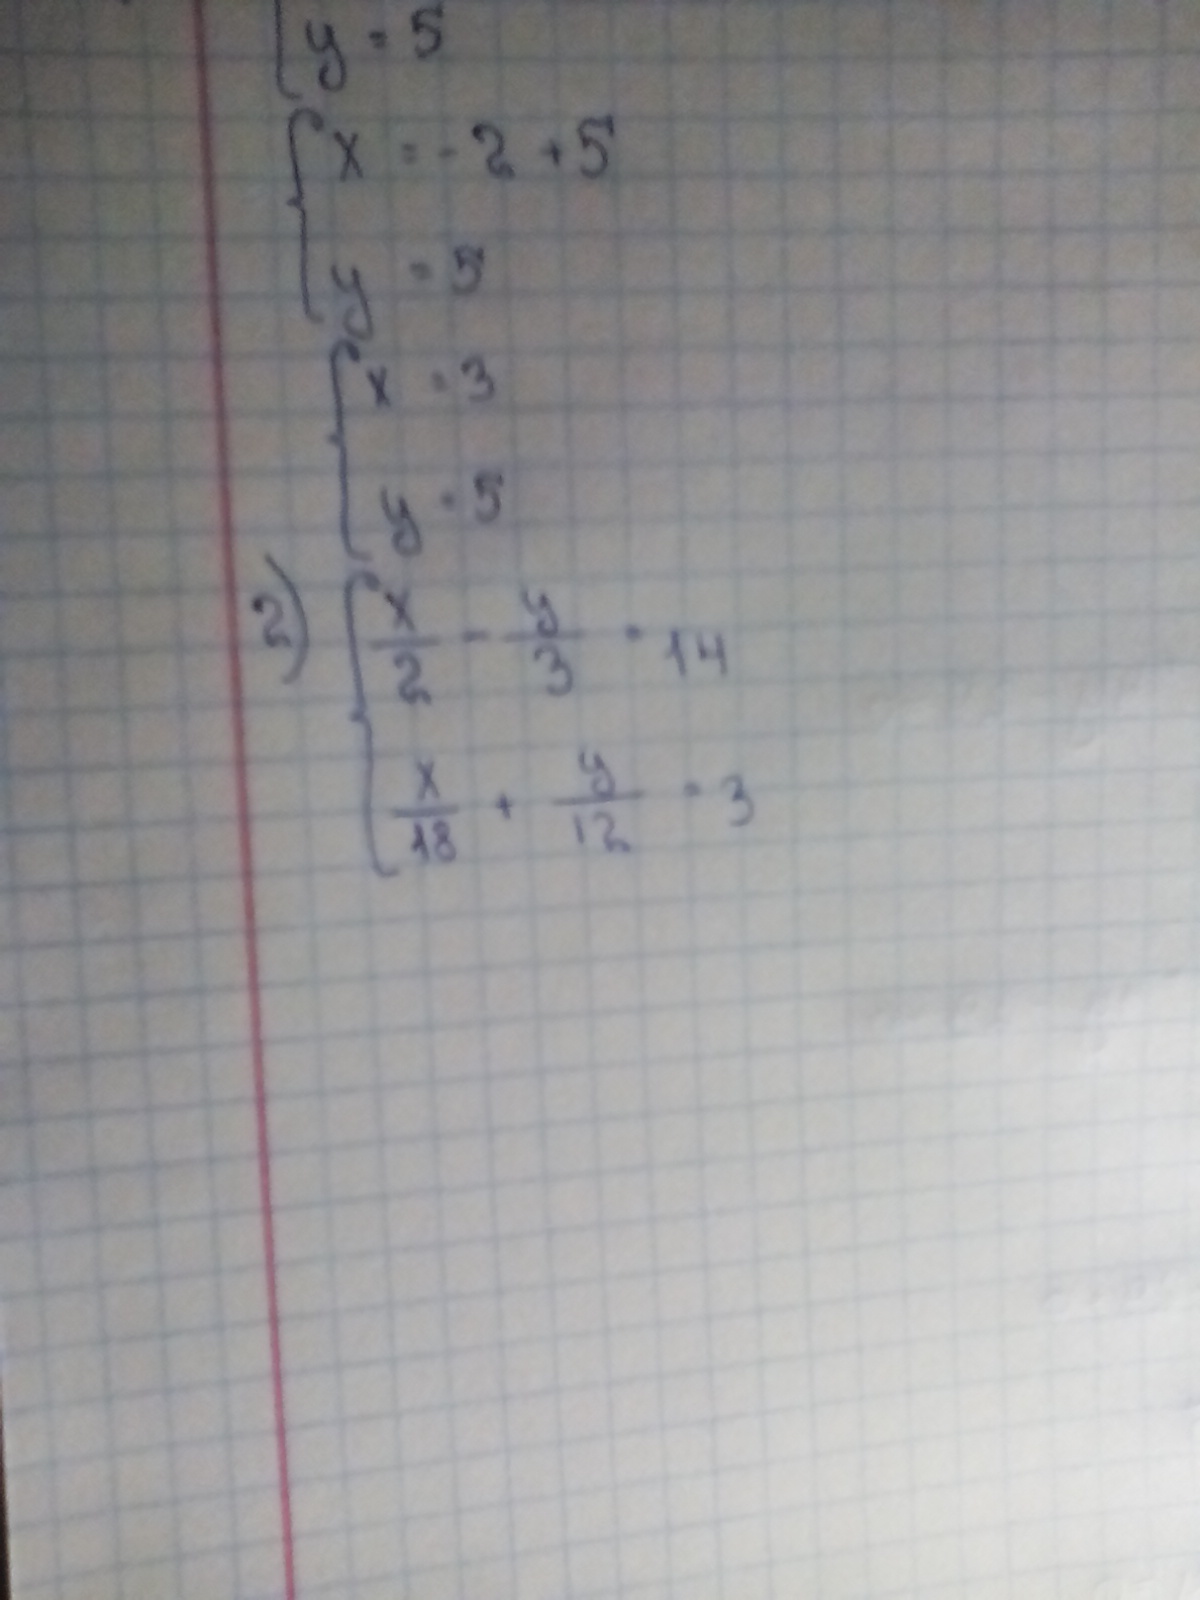 y = 5
x = -2 + 5
y = 5
x = 3
y = 5
2) x/2 - y/3 = 14
x/18 + y/12 = 3